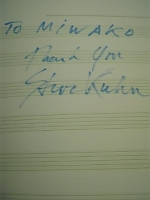 TO MIWAKO
Thank You
Steve Kuhn